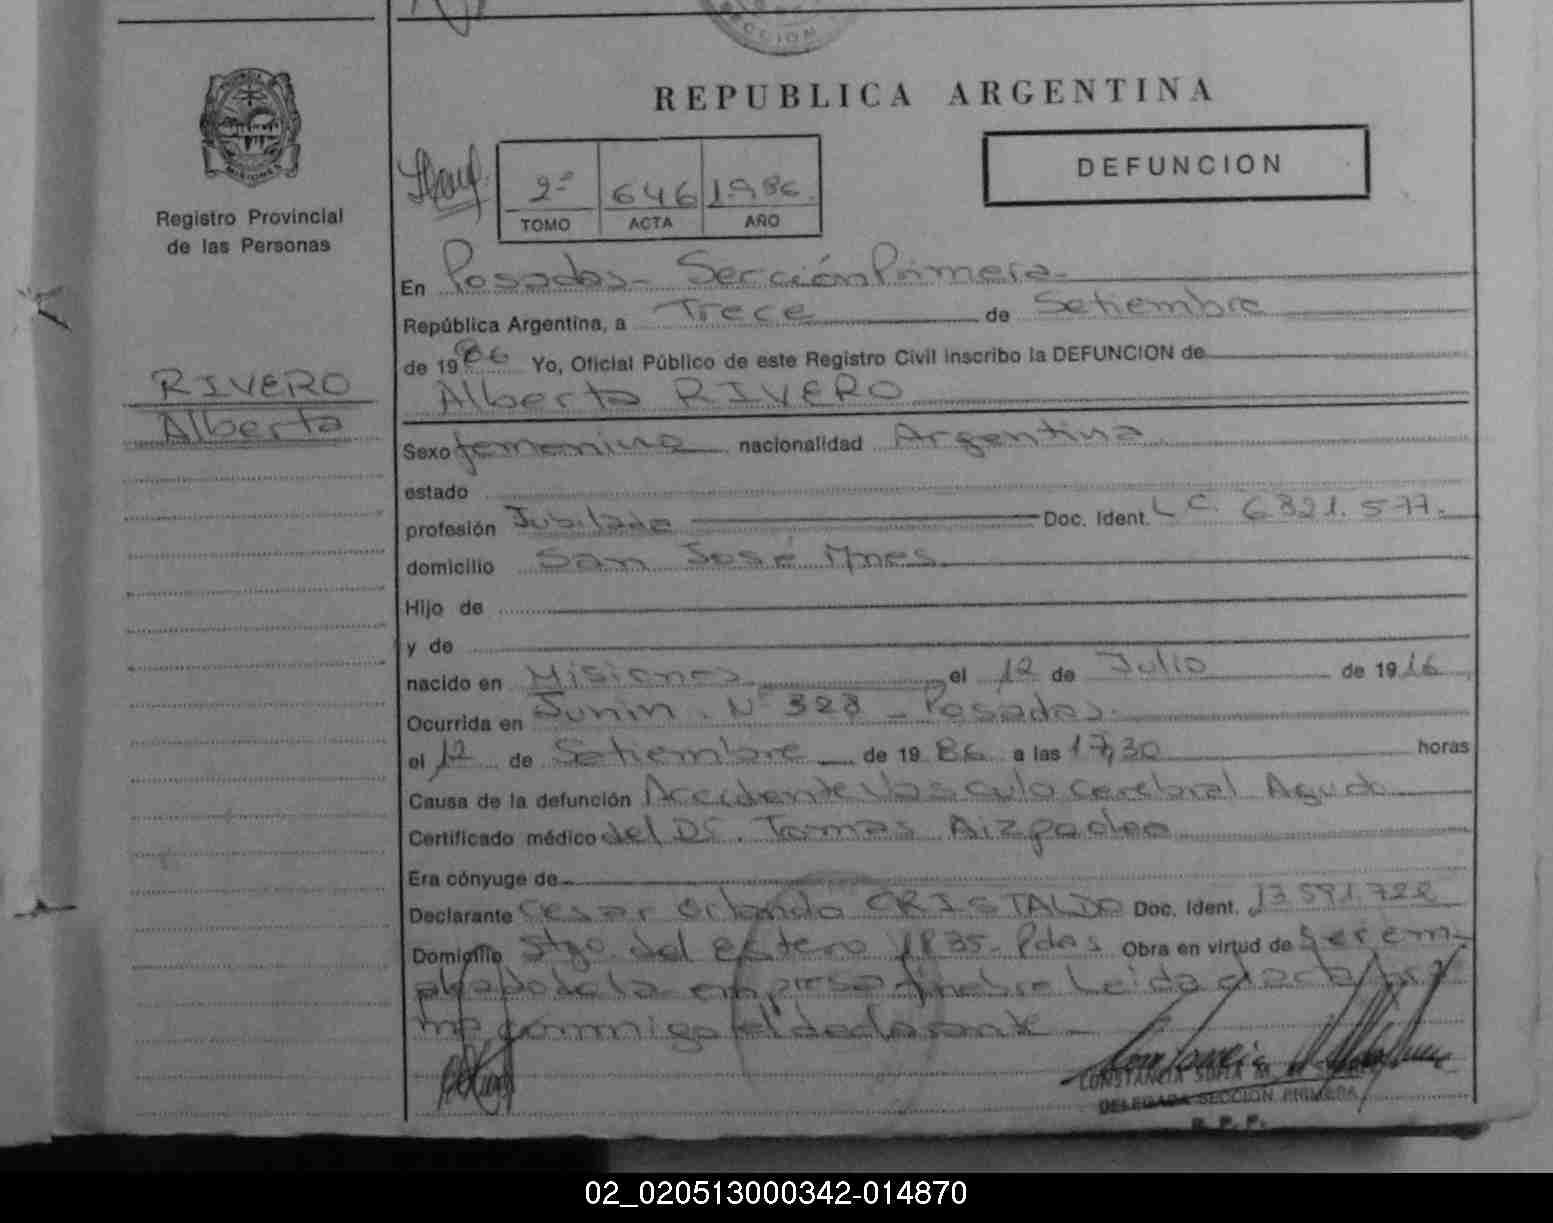 CCION
REPUBLICA ARGENTINA
DEFUNCION
2º 646 1986
TOMO ACTA AÑO
MISIONES
Registro Provincial
de las Personas
RIVERO
Alberta
En Posadas - Sección Primera
República Argentina, a Trece de Setiembre
de 1986 Yo, Oficial Público de este Registro Civil inscribo la DEFUNCION de
Alberta RIVERO
Sexo femenino nacionalidad Argentina
estado
profesión Jubilada Doc. Ident. L C. 6.821.577.
domicilio San José Mnes
Hijo de
y de
nacido en Misiones el 12 de Julio de 1916
Ocurrida en Junin. Nº 328 - Posadas.
el 12 de Setiembre de 1986 a las 17,30 horas
Causa de la defunción Accidente Vasculo cerebral Agudo
Certificado médico del Dr. Tomas
Era cónyuge de
Declarante Cesar Orlando CRISTALDO Doc. Ident. 13.591.722
Domicilio Stgo. del estero Pdas Obra en virtud de ser em-
pleado de la empresa funebre Leida el acta fir
ma conmigo el declarante -
CONSTANCIA SOFIA
DELEGADA SECCION PRIMERA
R.P.P.
02_020513000342-014870